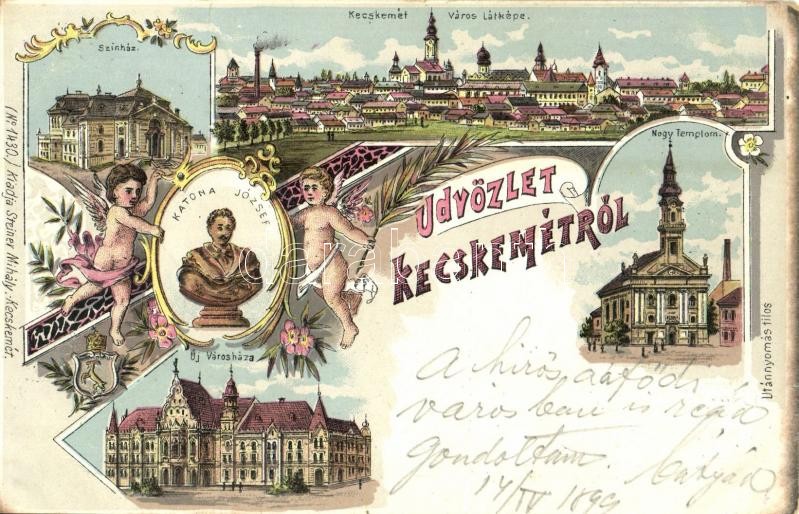 Kecskemét Város Látképe.
Színház.
Nagy Templom.
KATONA JÓZSEF
Üdvözlet
Kecskemétről
Új Városháza
(No 1430.) Kiadja Steiner Mihály. Kecskemét.
Utánnyomás tilos
A hirös
város ban is reád
gondoltam.
14/IV 1899